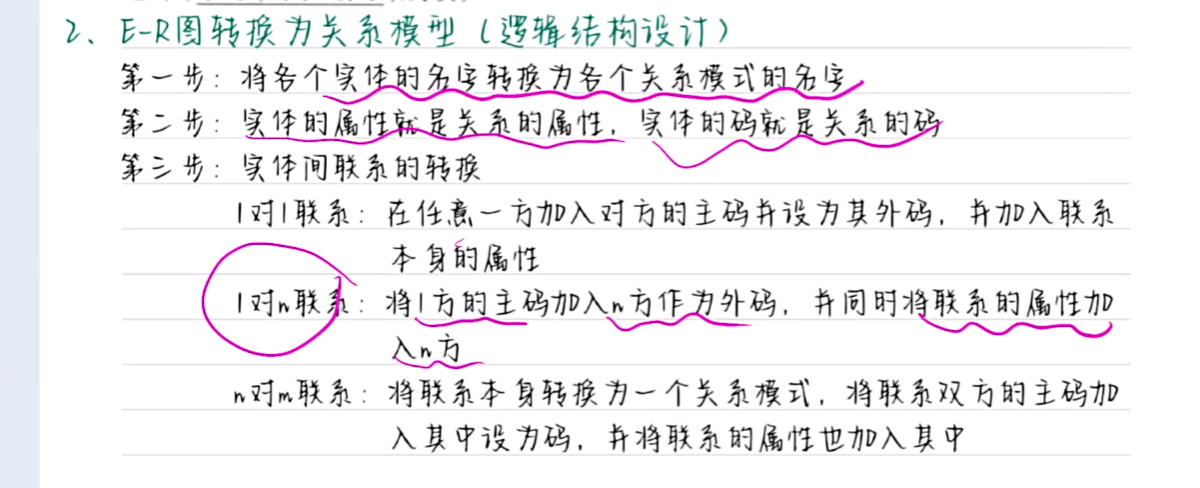 2、E-R图转换为关系模型(逻辑结构设计)
第一步：将各个实体的名字转换为各个关系模式的名字
第二步：实体的属性就是关系的属性，实体的码就是关系的码
第三步：实体间联系的转换
1对1联系：在任意一方加入对方的主码并设为其外码，并加入联系
本身的属性
1对n联系：将1方的主码加入n方作为外码，并同时将联系的属性加
入n方
n对m联系：将联系本身转换为一个关系模式，将联系双方的主码加
入其中设为码，并将联系的属性也加入其中